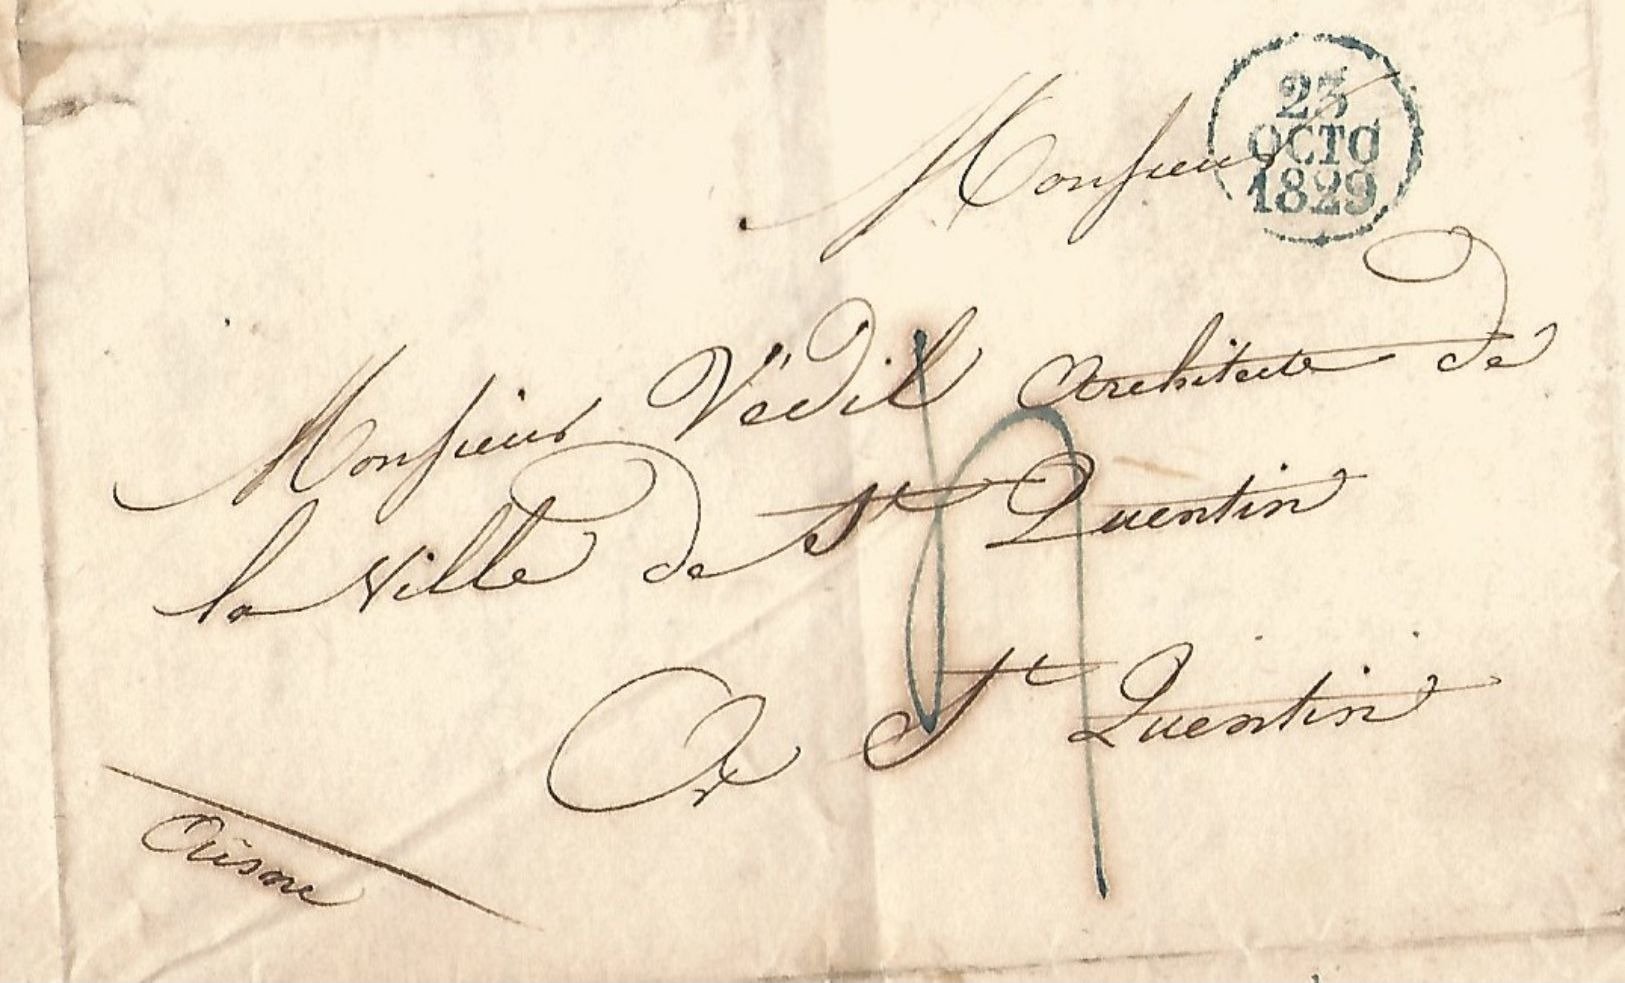 23
OCTO
1829
Monsieur
Monsieur Védil Architecte de
la Ville de St Quentin
A St Quentin
Aisne